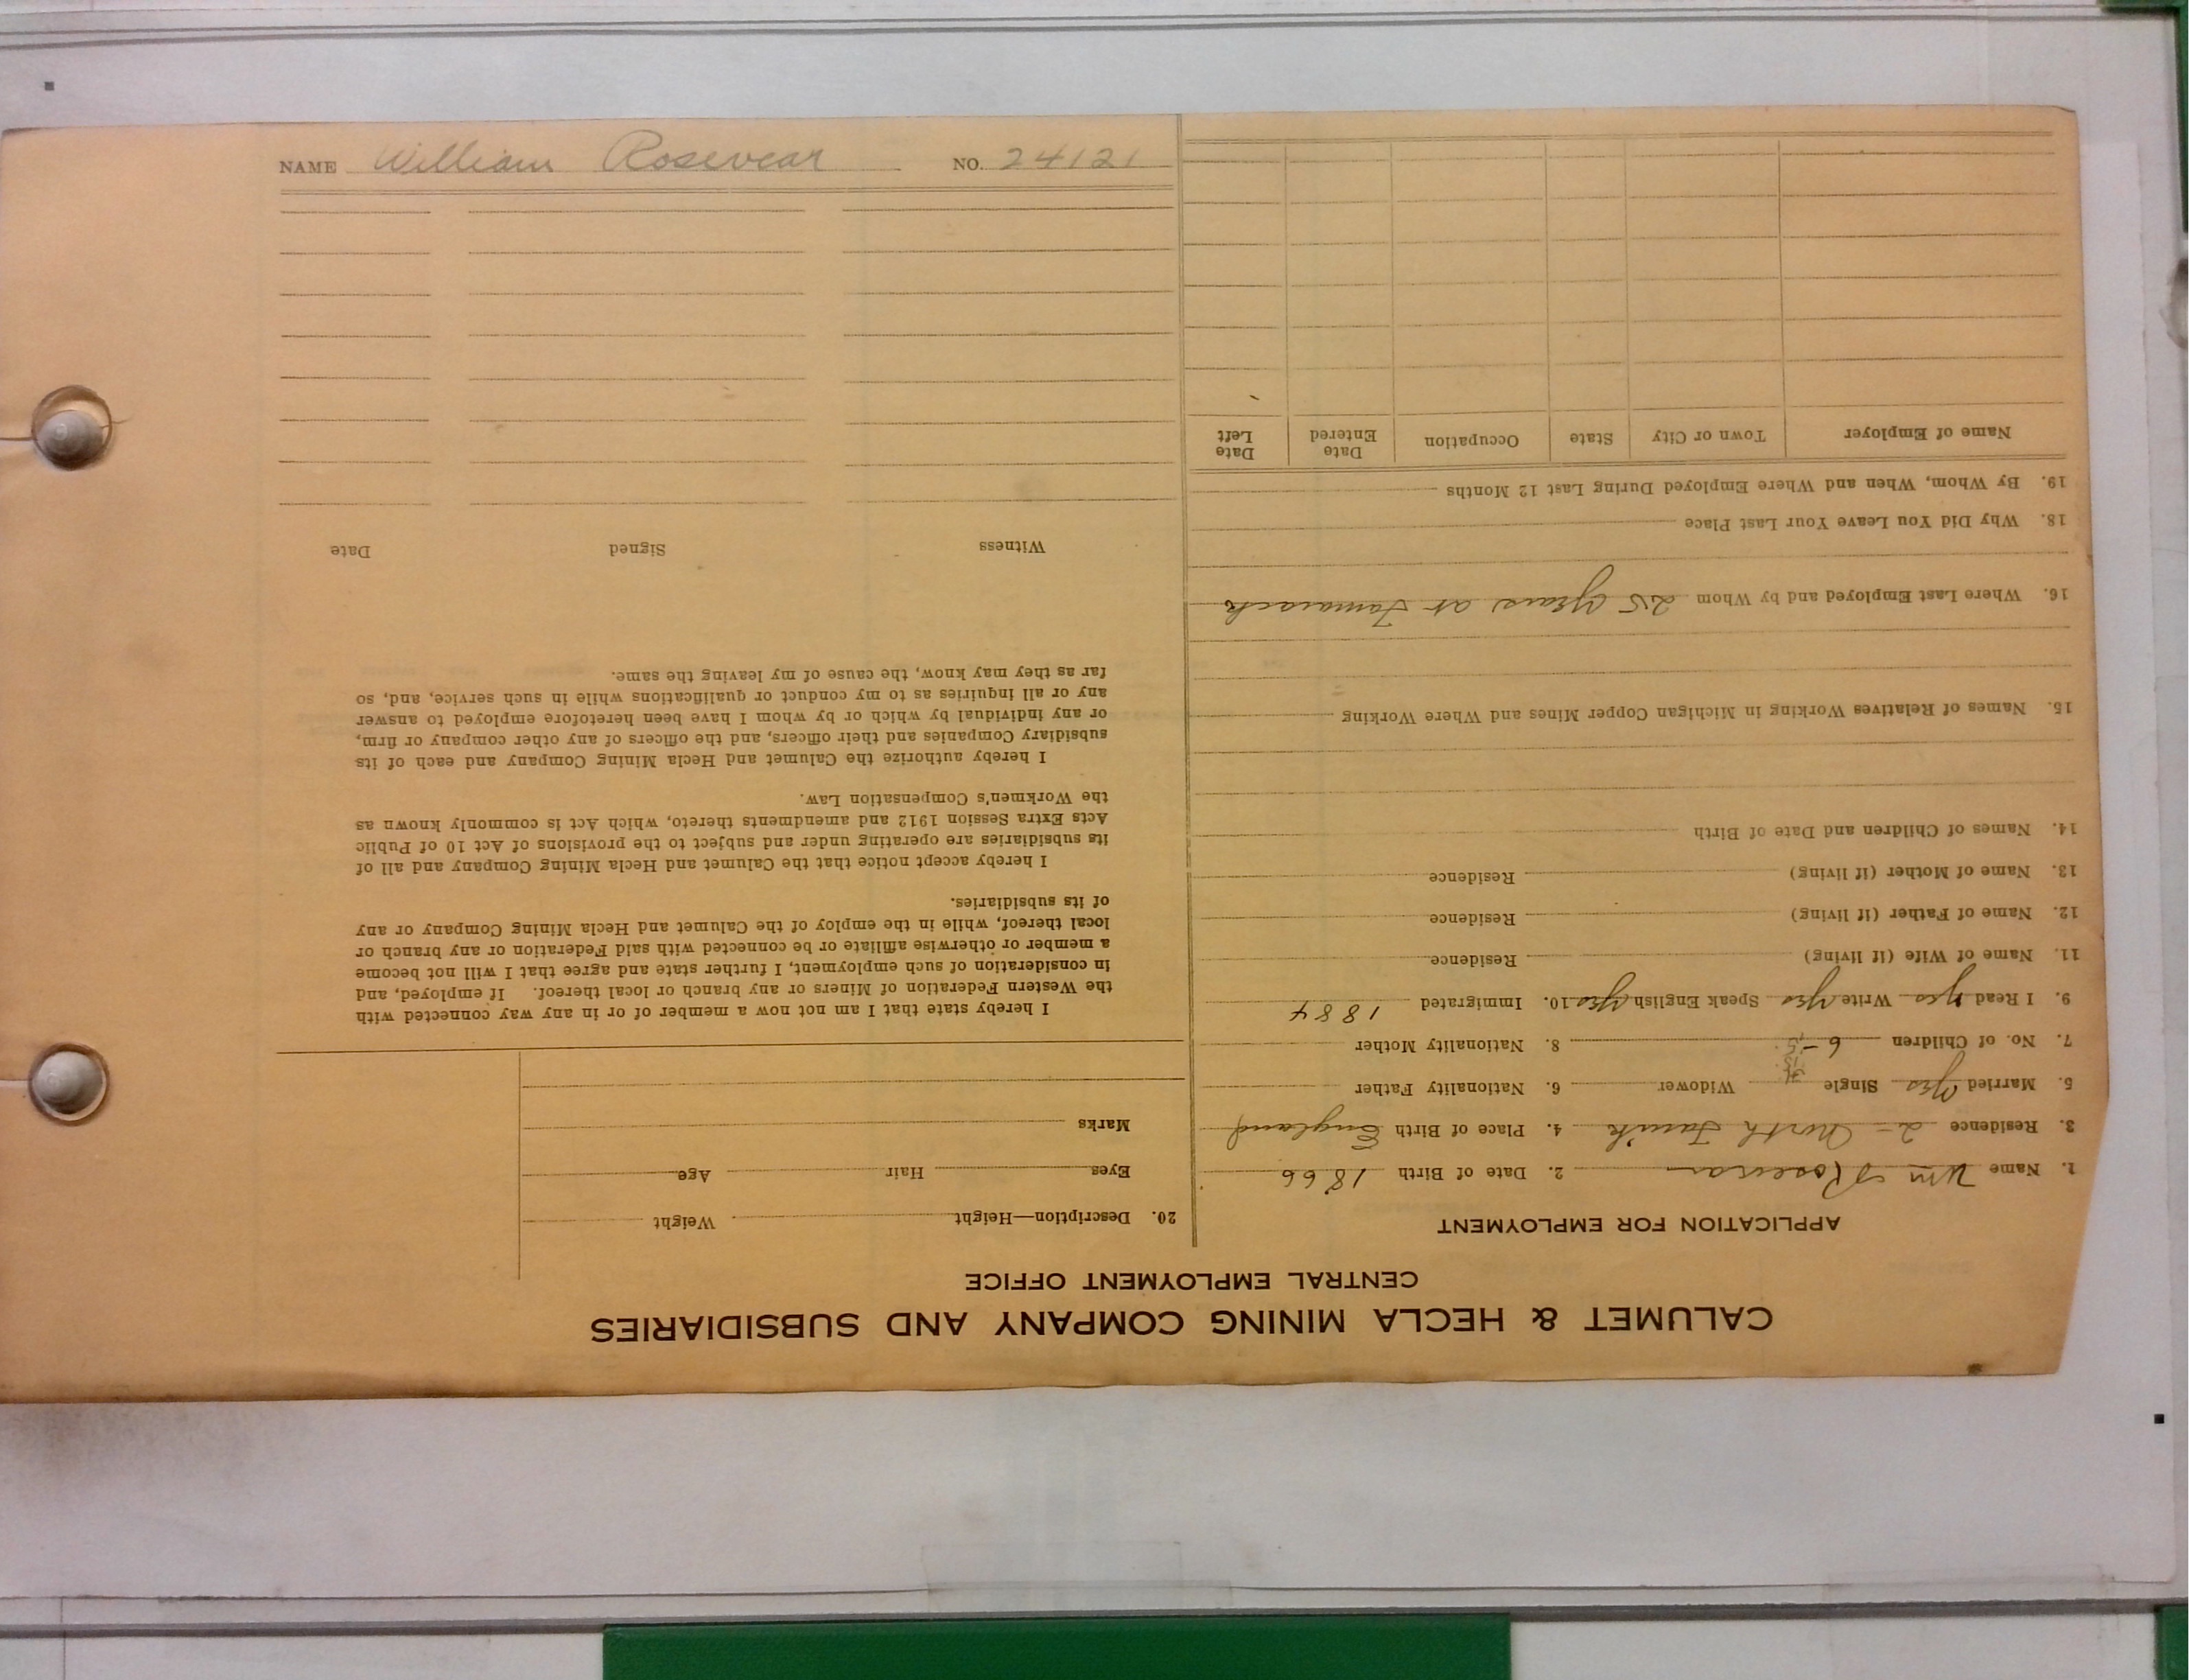 NAME William Rosevear NO. 24121
CALUMET & HECLA MINING COMPANY AND SUBSIDIARIES
CENTRAL EMPLOYMENT OFFICE
APPLICATION FOR EMPLOYMENT
1. Name Wm Rosevear 2. Date of Birth 1866
3. Residence 2 - North Tam'k 4. Place of Birth England
5. Married Yes Single Widower 6. Nationality Father
7. No. of Children 6 - 8. Nationality Mother
9. I Read Yes Write Yes Speak English Yes 10. Immigrated 1884
11. Name of Wife (if living) Residence
12. Name of Father (if living) Residence
13. Name of Mother (if living) Residence
14. Names of Children and Date of Birth
15. Names of Relatives Working in Michigan Copper Mines and Where Working
16. Where Last Employed and by Whom 25 Years at Tamarack
18. Why Did You Leave Your Last Place
19. By Whom, When and Where Employed During Last 12 Months
Name of Employer Town or City State Occupation Date Entered Date Left
20. Description—Height Weight
Eyes Hair Age
Marks
I hereby state that I am not now a member of or in any way connected with
the Western Federation of Miners or any branch or local thereof. If employed, and
in consideration of such employment, I further state and agree that I will not become
a member or otherwise affiliate or be connected with said Federation or any branch or
local thereof, while in the employ of the Calumet and Hecla Mining Company or any
of its subsidiaries.
I hereby accept notice that the Calumet and Hecla Mining Company and all of
its subsidiaries are operating under and subject to the provisions of Act 10 of Public
Acts Extra Session 1912 and amendments thereto, which Act is commonly known as
the Workmen's Compensation Law.
I hereby authorize the Calumet and Hecla Mining Company and each of its
subsidiary Companies and their officers, and the officers of any other company or firm,
or any individual by which or by whom I have been heretofore employed to answer
any or all inquiries as to my conduct or qualifications while in such service, and, so
far as they may know, the cause of my leaving the same.
Witness Signed Date